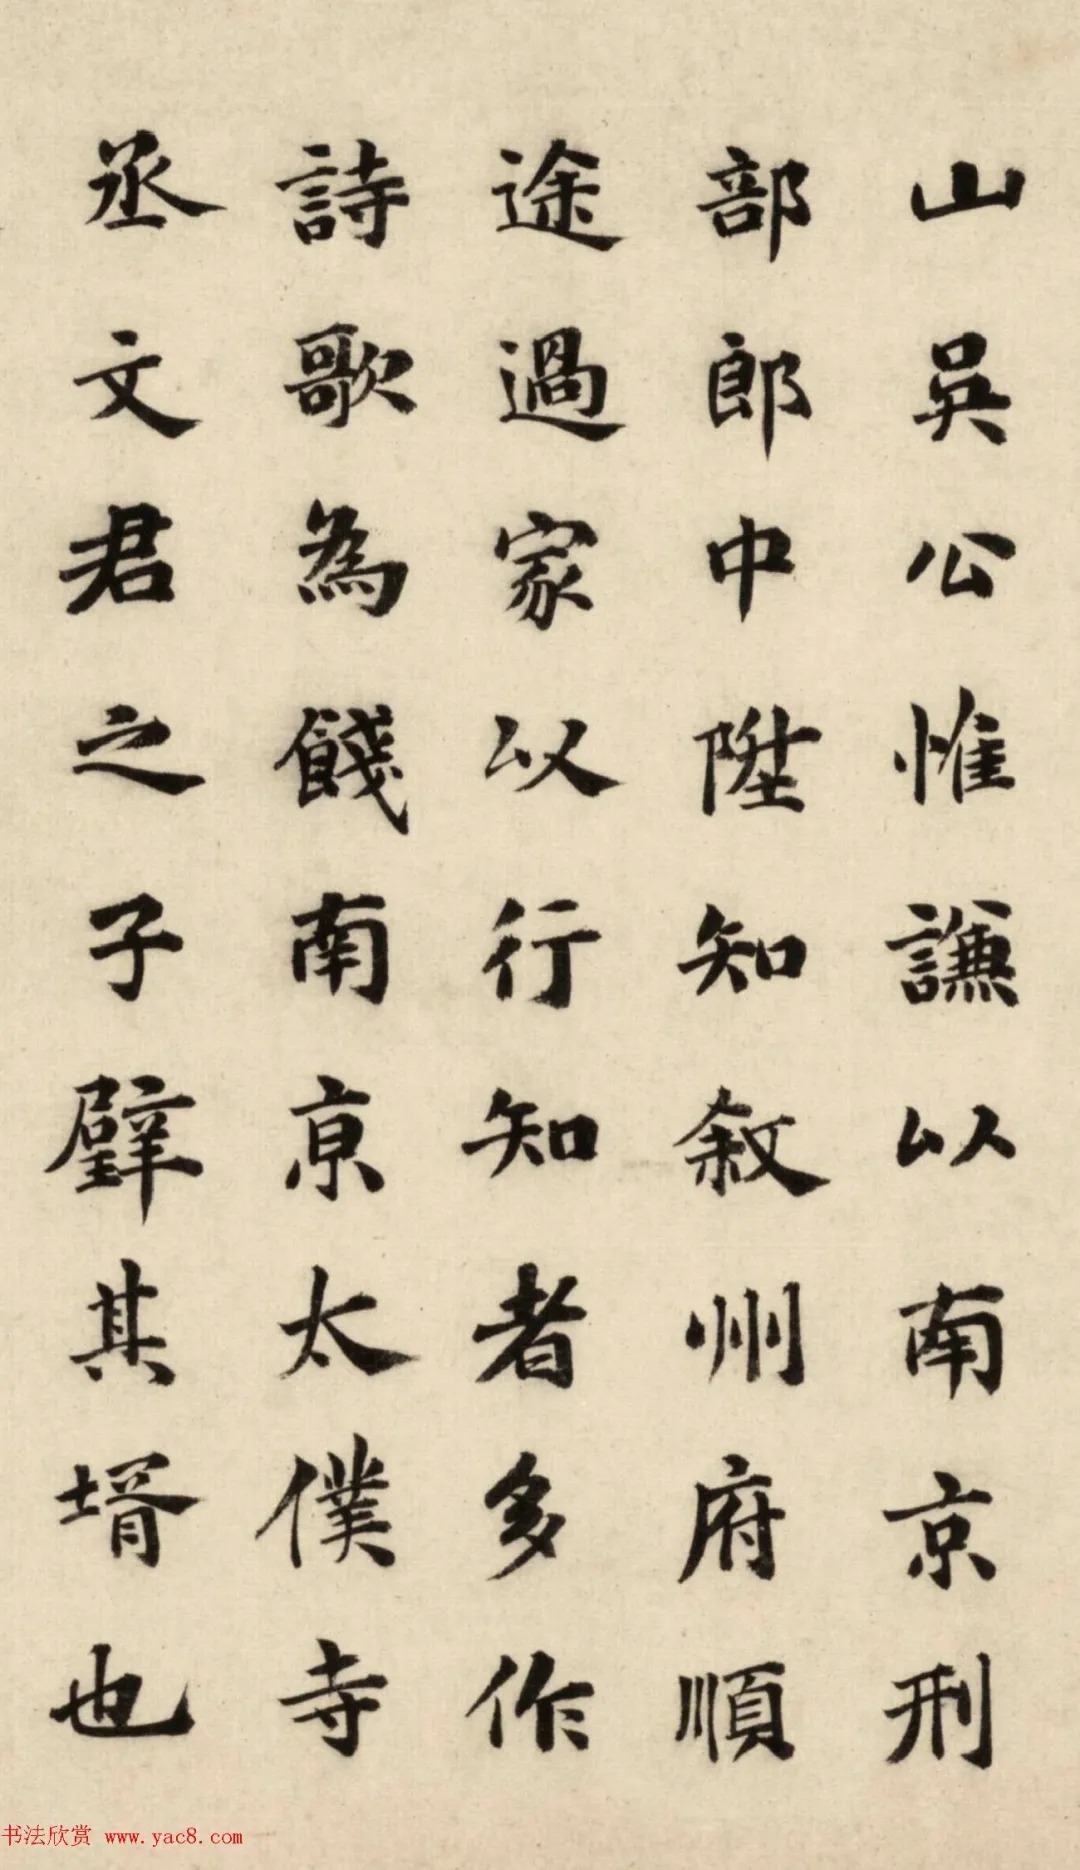 山吳公惟謙以南京刑
部郎中陞知敘州府順
途過家以行知者多作
詩歌為餞南京太僕寺
丞文君之子壁其壻也
书法欣赏 www.yac8.com